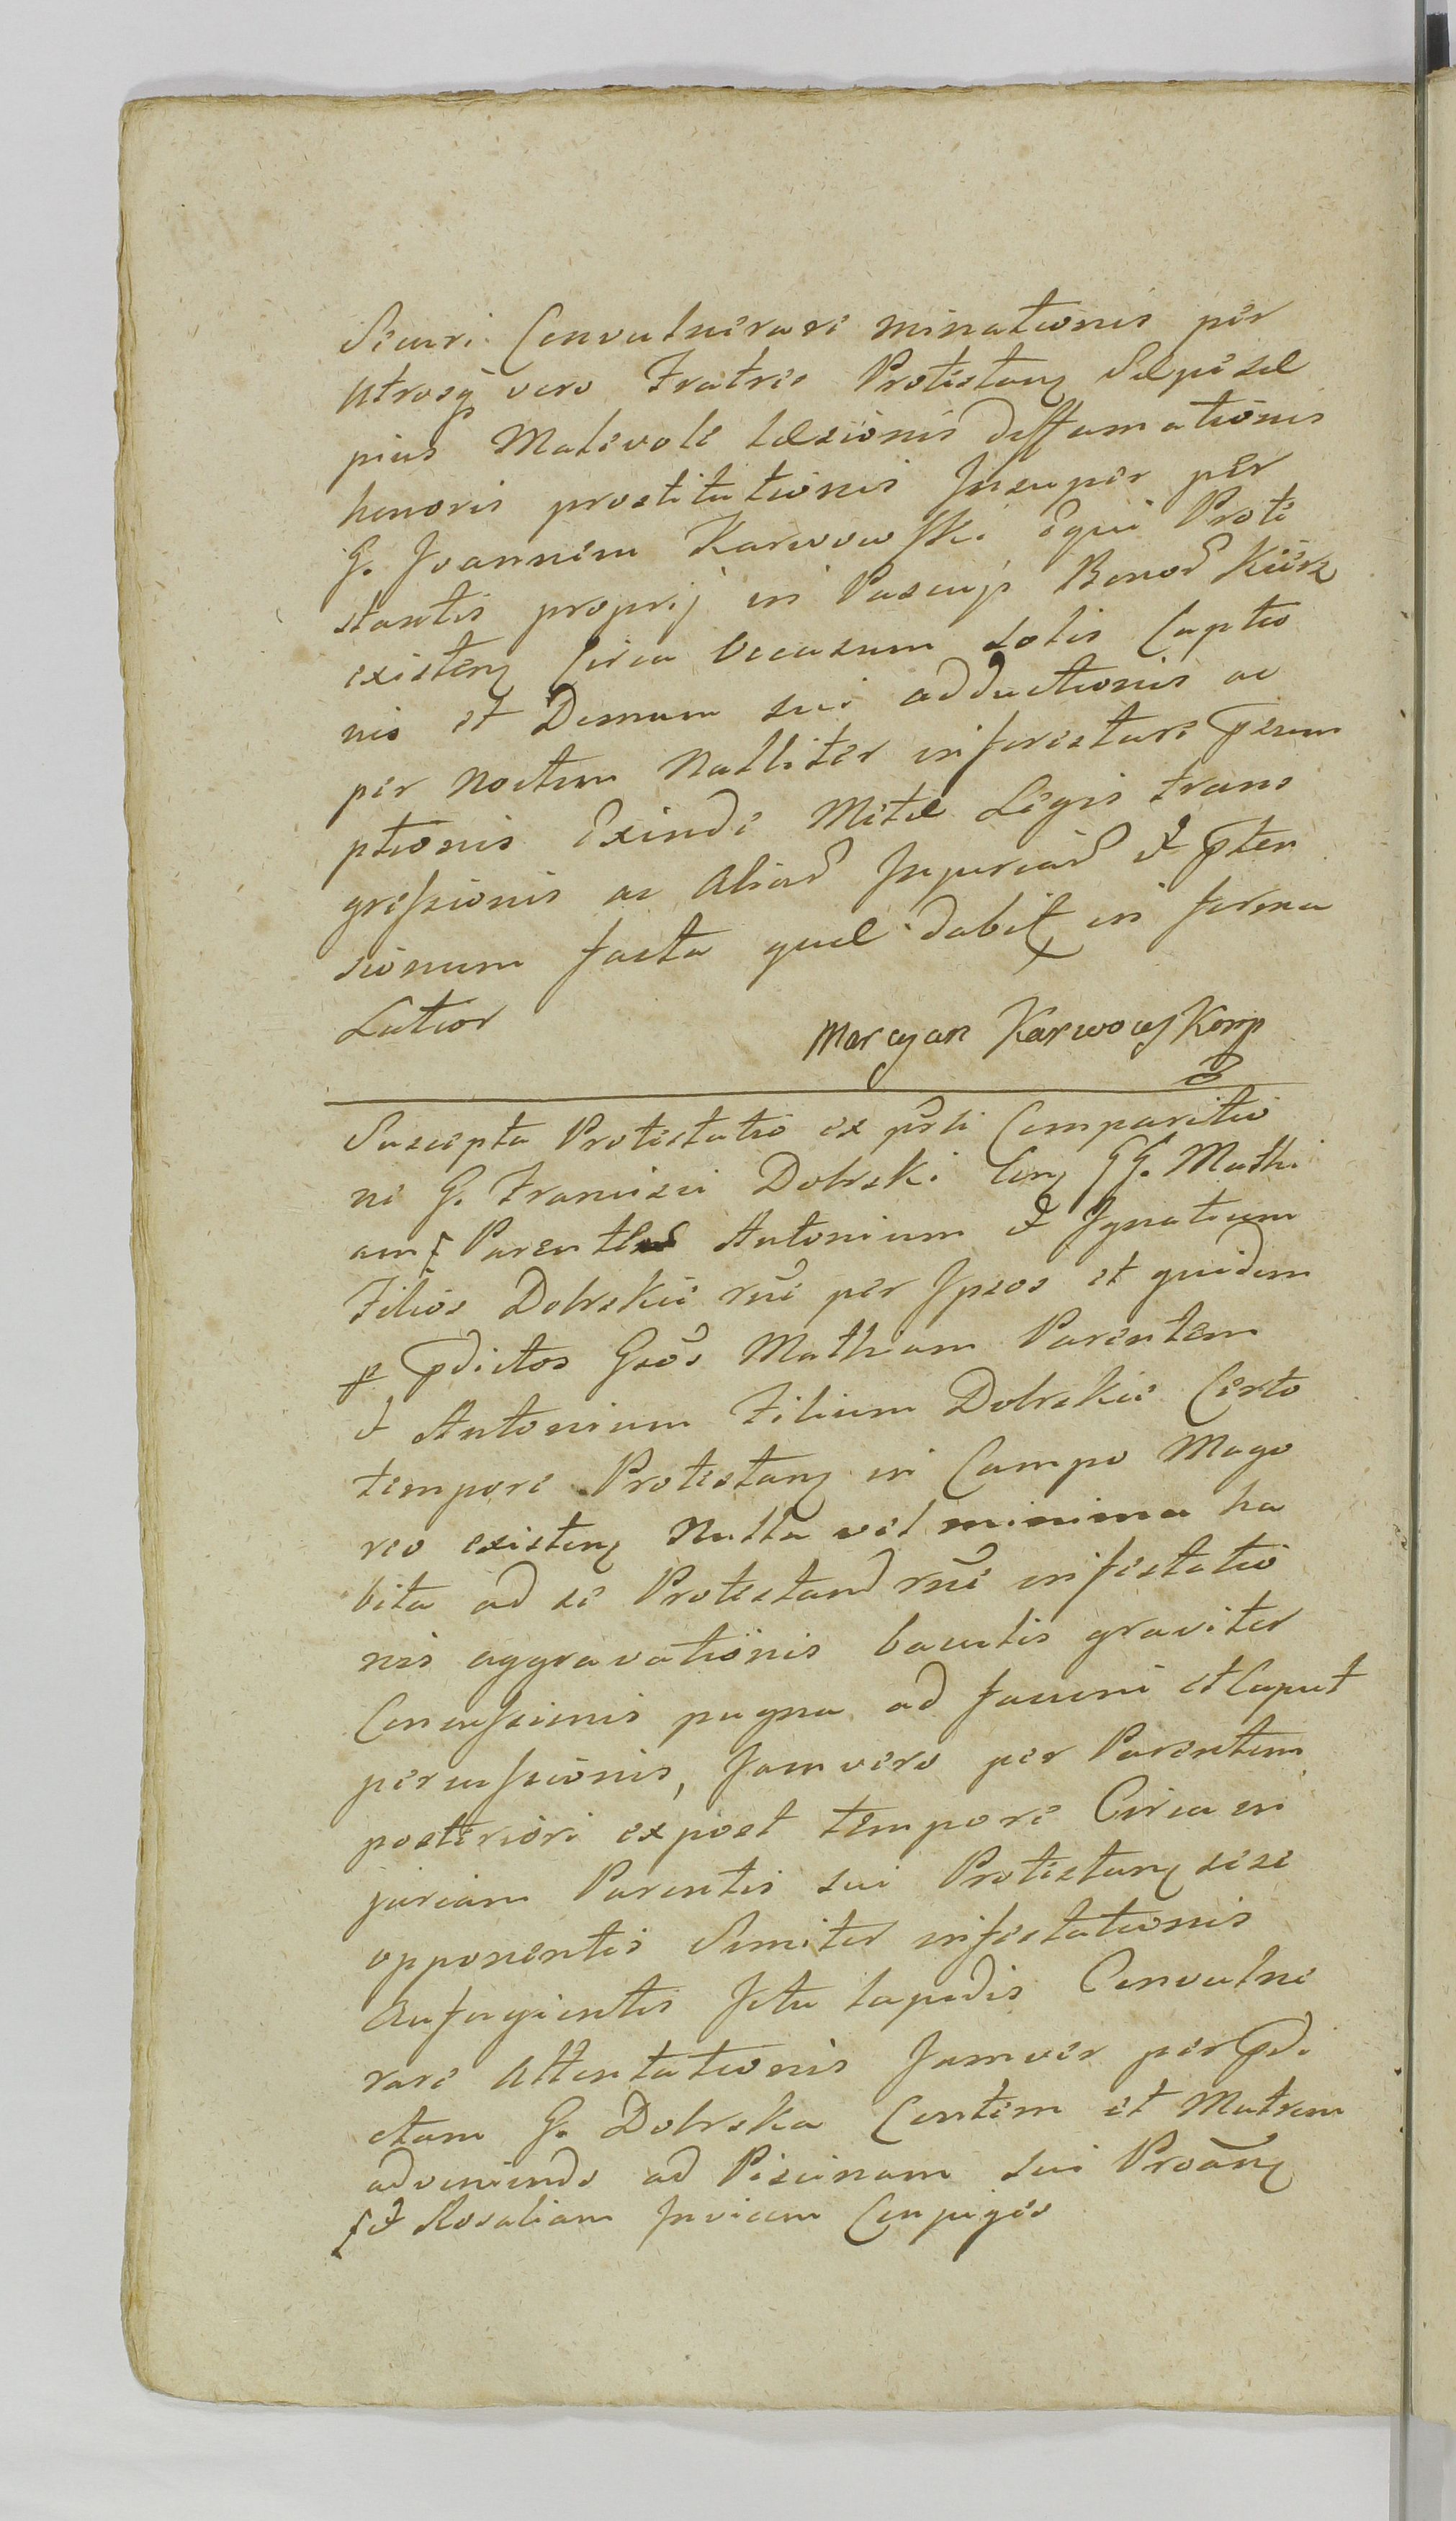 Securi Convulnerare minationis per
utrosq vero Fratres Protestang Sæpisæ
pius Malevole læsionis diffamationis
honoris prostitutionis Insuper per
G. Joannem Karwowski Equi Prote
stantis proprij in Pascuis Bonor
existeng Circa Occasum solis Captio
nis et Domum sui adductionis ac
per noctem Nulliter inforestare præsum
ptionis Exinde Metæ Legis trans
gressionis ac Aliar Injuriar et præten
sionum facta quæ dabit in forma
Latior
Maryan Karwowski mp
Suscepta Protestatio ex pñti Comparitio
ne G. Francisci Dobrski Cong GG. Mathi
am Antonium et Ignatium
Filios Dobrskie rñe per Ipsos et quidem
p pdictos Gsos Mathiam Parentem
et Antonium Filium Dobrskie Certo
tempore Protestang in Campo Mago
reo existeng Nulla vel minima ha
bita ad se Protestand rñe infestatio
nis aggravationis baculis graviter
Concussionis pugna ad faciem et Caput
percussionis, Jam vero per Parentem
posteriori expost tempore Circa in
juriam Parentis sui Protestang sese
opponentis Simiter infestationis
Aufugientis Ictu lapidis Convulne
rare Attentationis Jamver per pdi
ctam G. Dobrska Contem et Matrem
adveniendo ad Piscinam sui Proang
[et Rosaliam Invicem Conjuges